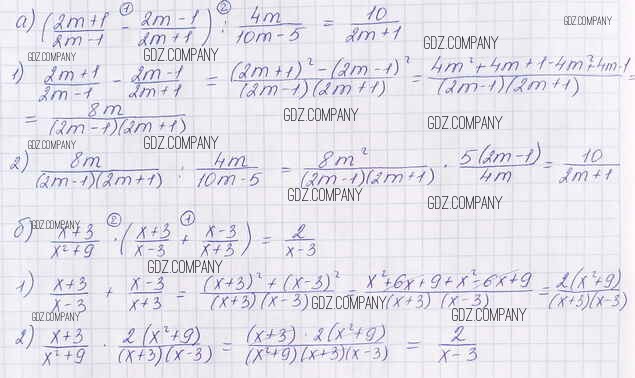 а) ((2m+1)/(2m-1) - (2m-1)/(2m+1)) : 4m/(10m-5) = 10/(2m+1)
① ②
GDZ.COMPANY
GDZ.COMPANY GDZ.COMPANY GDZ.COMPANY
1) (2m+1)/(2m-1) - (2m-1)/(2m+1) = ((2m+1)²-(2m-1)²)/((2m-1)(2m+1)) = (4m²+4m+1-4m²+4m-1)/((2m-1)(2m+1)) =
= 8m/((2m-1)(2m+1))
GDZ.COMPANY GDZ.COMPANY
GDZ.COMPANY GDZ.COMPANY
2) 8m/((2m-1)(2m+1)) : 4m/(10m-5) = 8m²/((2m-1)(2m+1)) · 5(2m-1)/4m = 10/(2m+1)
GDZ.COMPANY GDZ.COMPANY
② ①
б) (x+3)/(x²+9) · ((x+3)/(x-3) + (x-3)/(x+3)) = 2/(x-3)
GDZ.COMPANY
GDZ.COMPANY
1) (x+3)/(x-3) + (x-3)/(x+3) = ((x+3)²+(x-3)²)/((x+3)(x-3)) = (x²+6x+9+x²-6x+9)/((x+3)(x-3)) = 2(x²+9)/((x+3)(x-3))
GDZ.COMPANY
GDZ.COMPANY GDZ.COMPANY
2) (x+3)/(x²+9) · 2(x²+9)/((x+3)(x-3)) = ((x+3)·2(x²+9))/((x²+9)(x+3)(x-3)) = 2/(x-3)